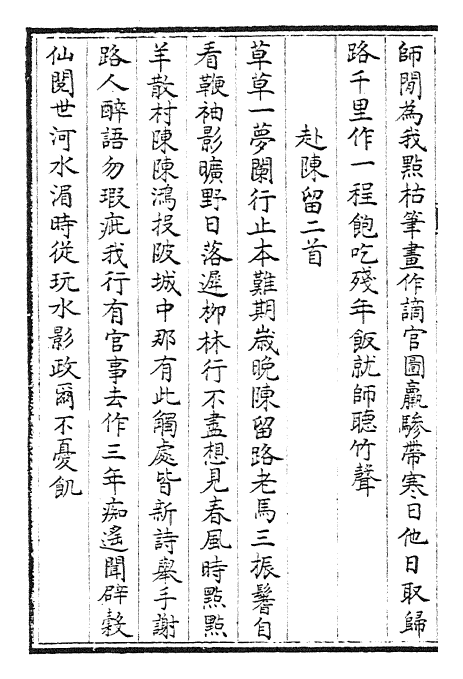 師閒為我㸃枯筆畫作謫官圖羸驂帶寒日他日取歸
路千里作一程飽吃殘年飯就師聽竹聲
赴陳留二首
草草一夢闌行止本難期歳晩陳留路老馬三振鬐自
看鞭袖影曠野日落遲栁林行不盡想見春風時㸃㸃
羊散村陳陳鴻投陂城中那有此觸處皆新詩舉手謝
路人醉語勿瑕疵我行有官事去作三年痴遙聞辟榖
仙閱世河水湄時從玩水影政爾不憂飢